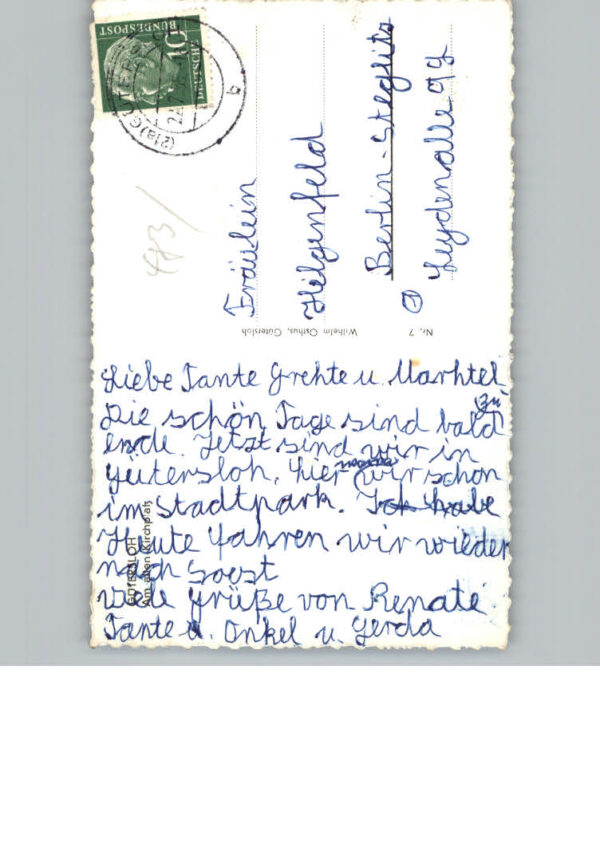 DEUTSCHE
BUNDESPOST
10
(21a) GÜTERSLOH
b
Fräulein
Hilgenfeld
Berlin-Steglitz
Leydenalle 94
Nr. 7 Wilhelm Osthus, Gütersloh
Liebe Tante Grehte u. Marhtel
Die schön Tage sind bald zu
ende. Jetzt sind wir in
Gütersloh, hier waren wir schon
im Stadtpark. Ich habe
Heute fahren wir wieder
nach Soest
Viele Grüße von Renate
Tante u. Onkel u. Gerda
GÜTERSLOH
Am alten Kirchplatz